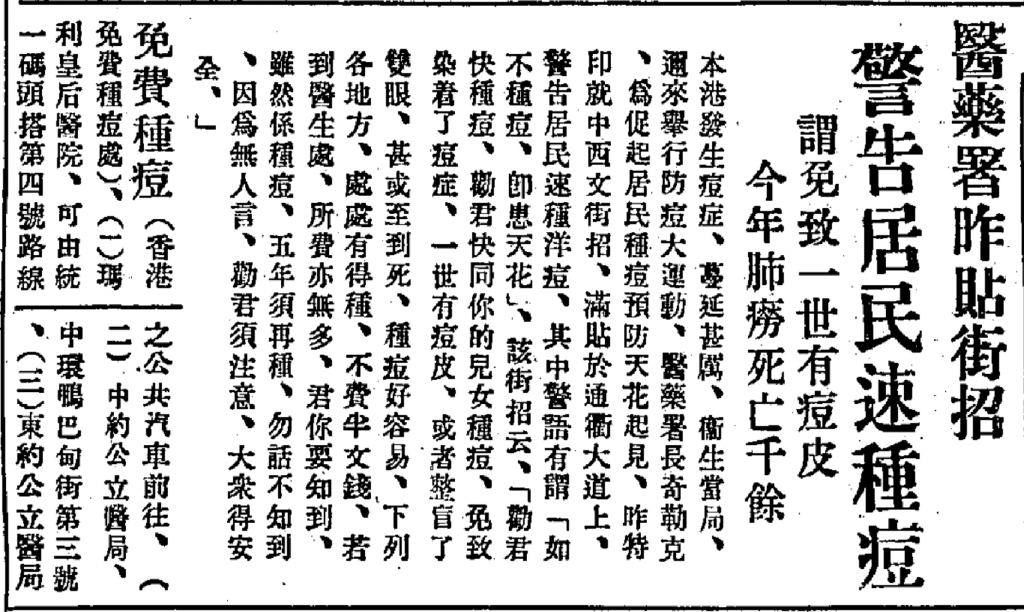 醫藥署昨貼街招
警告居民速種痘
謂免致一世有痘皮
今年肺癆死亡千餘
本港發生痘症、蔓延甚厲、衞生當局、
邇來舉行防痘大運動、醫藥署長奇勒克
、爲促起居民種痘預防天花起見、昨特
印就中西文街招、滿貼於通衢大道上、
警告居民速種洋痘、其中警語有謂「如
不種痘、卽患天花」、該街招云、「勸君
快種痘、勸君快同你的兒女種痘、免致
染着了痘症、一世有痘皮、或者整盲了
雙眼、甚或至到死、種痘好容易、下列
各地方、處處有得種、不費半文錢、若
到醫生處、所費亦無多、君你要知到、
雖然係種痘、五年須再種、勿話不知到
、因爲無人言、勸君須注意、大衆得安
全、」
免費種痘（香港
免費種痘處）、（一）瑪
利皇后醫院、可由統
一碼頭搭第四號路線
之公共汽車前往、（
二）中約公立醫局、
中環鴨巴甸街第三號
、（三）東約公立醫局